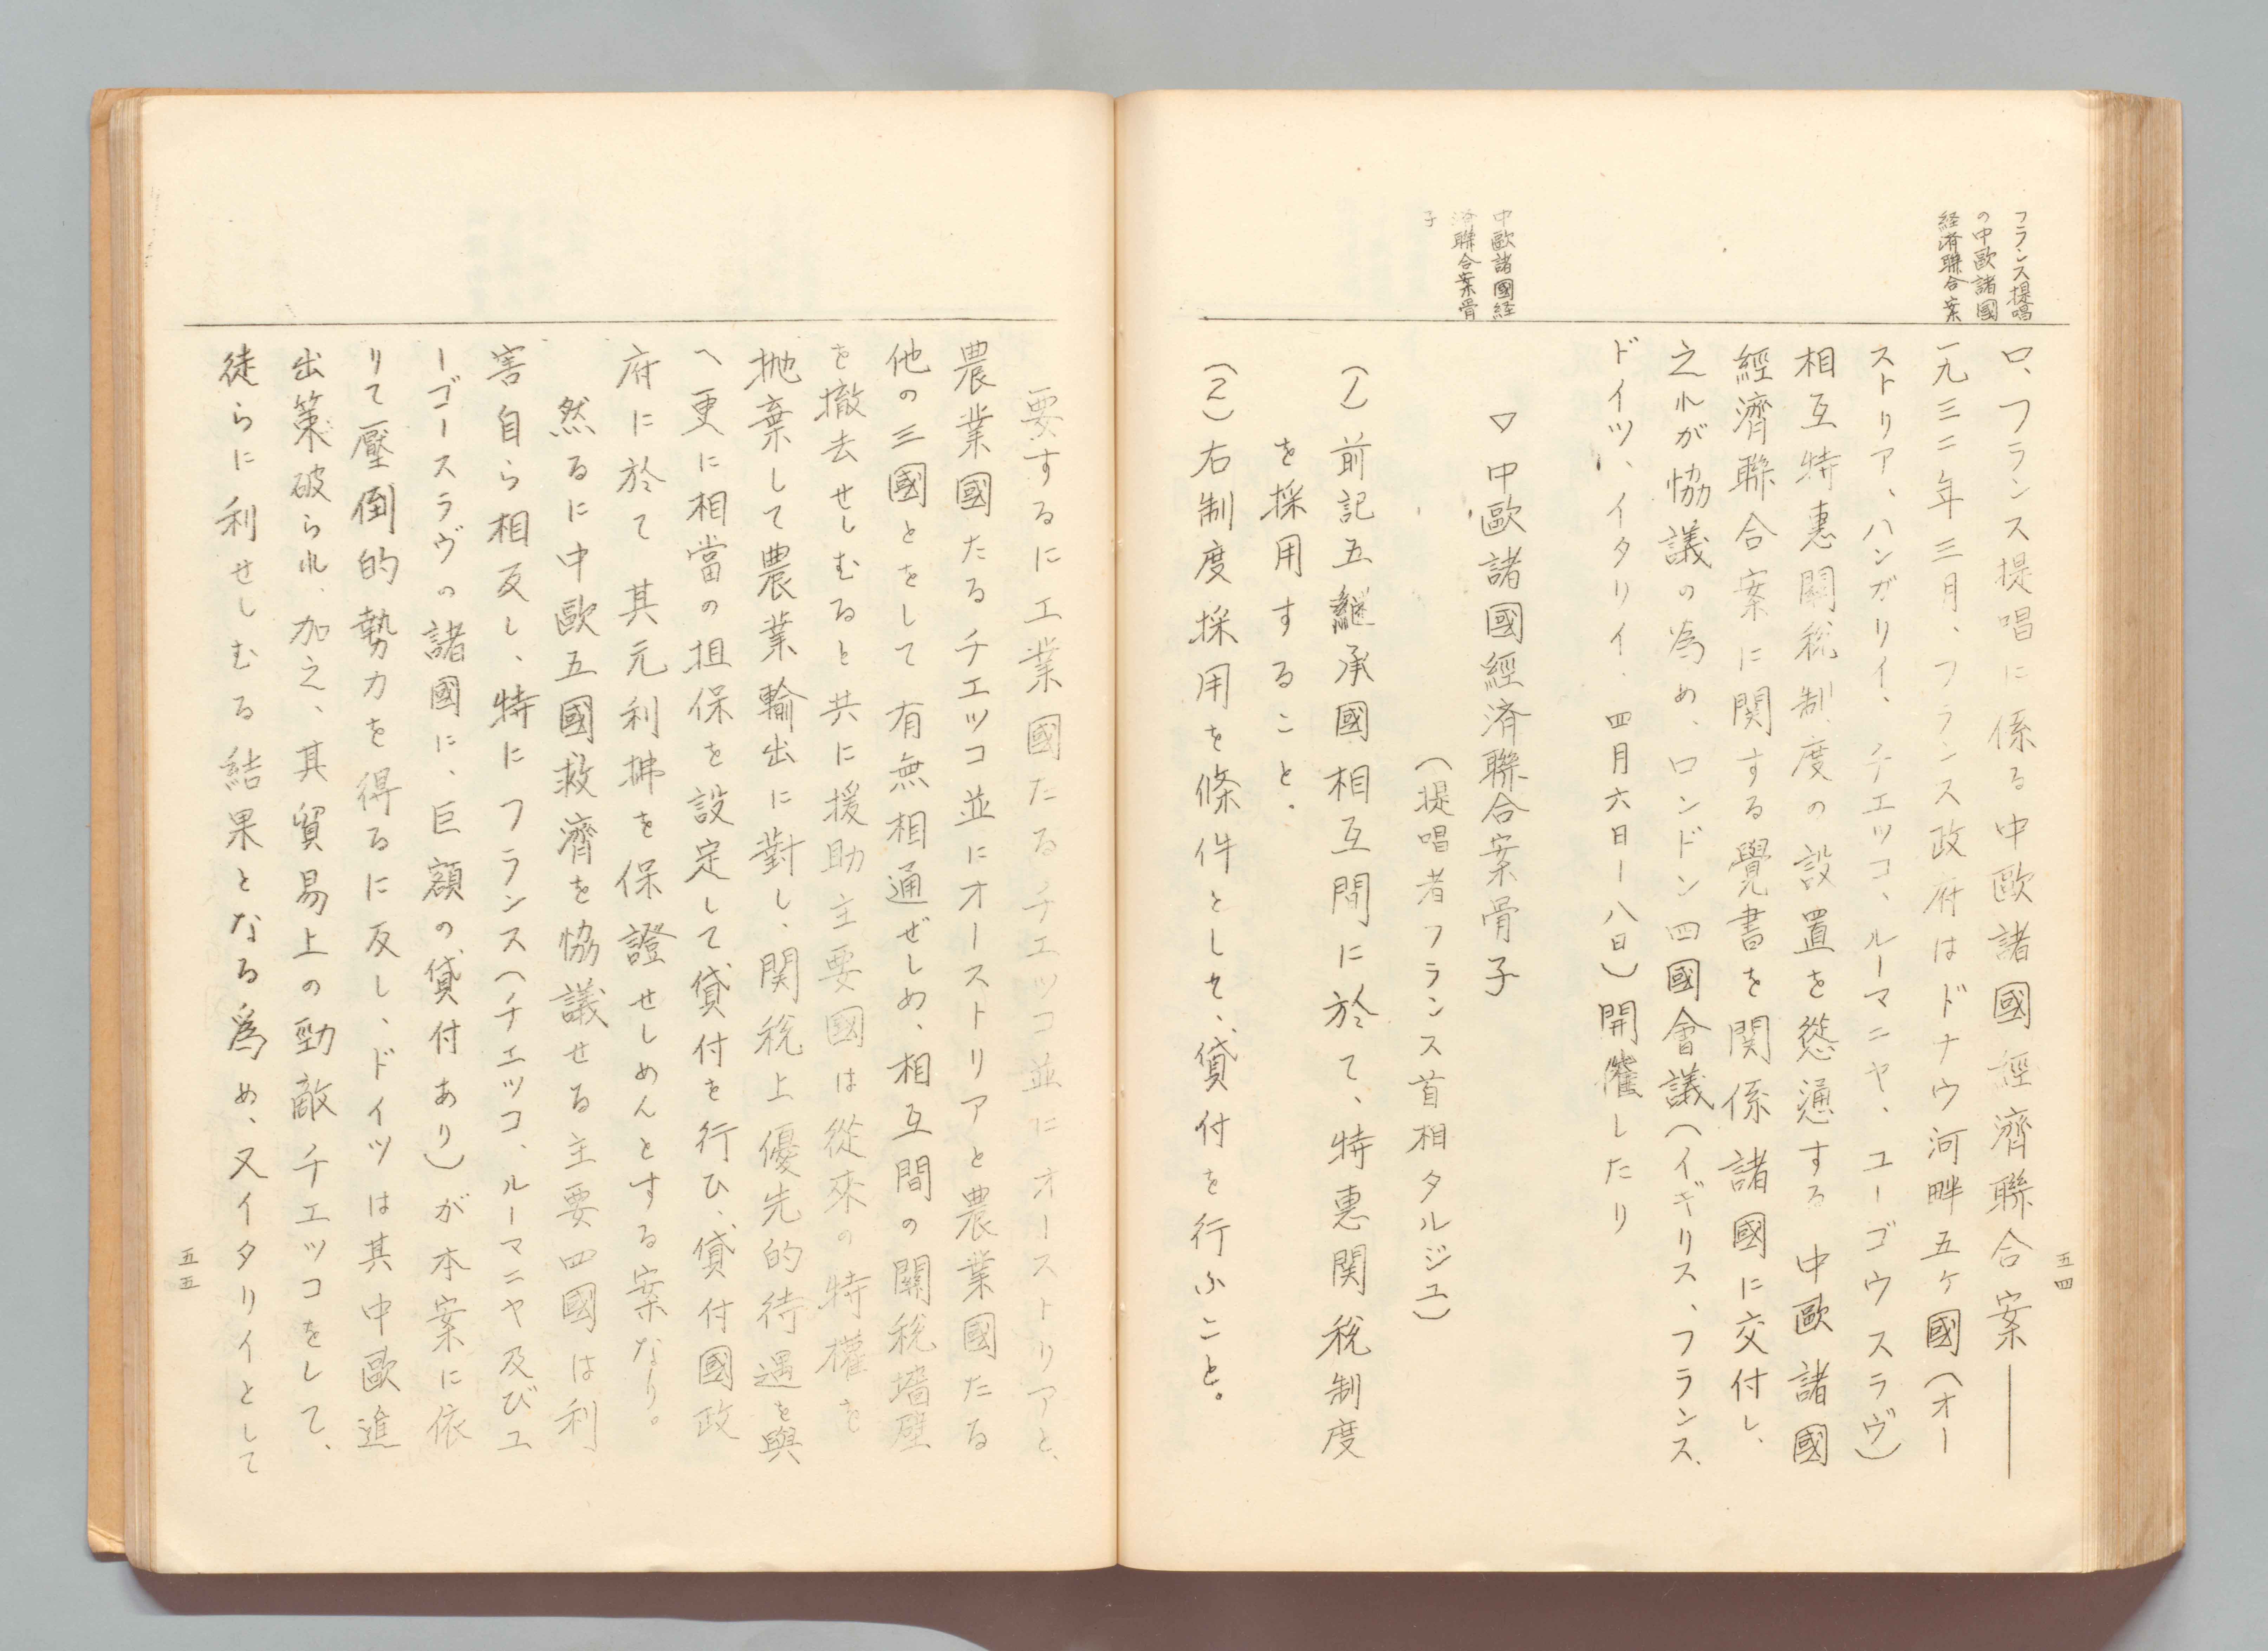 フランス提唱
の中歐諸國
経済聯合案
ロ、フランス提唱に係る中歐諸國經濟聯合案――
一九三二年三月、フランス政府はドナウ河畔五ヶ國(オー
ストリア、ハンガリイ、チエッコ、ルーマニヤ、ユーゴウスラヴ)
相互特惠關税制度の設置を慫慂する中歐諸國
經濟聯合案に関する覺書を関係諸國に交付し、
之れが協議の為め、ロンドン四國會議(イギリス、フランス、
ドイツ、イタリイ、四月六日ー八日)開催したり
中歐諸國経
済聯合案骨
子
▽中歐諸國經済聯合案骨子
(提唱者フランス首相タルジユ)
(1)前記五継承國相互間に於て、特惠関税制度
を採用すること。
(2)右制度採用を條件として、貸付を行ふこと。
五四
要するに工業國たるチエッコ並にオーストリアと、
農業國たるチエッコ並にオーストリアと農業國たる
他の三國とをして有無相通ぜしめ、相互間の關税墻壁
を撤去せしむると共に援助主要國は從來の特權を
抛棄して農業輸出に對し、関税上優先的待遇を與
へ更に相當の担保を設定して貸付を行ひ、貸付國政
府に於て其元利拂を保證せしめんとする案なり。
然るに中歐五國救濟を協議せる主要四國は利
害自ら相反し、特にフランス(チエッコ、ルーマニヤ及びユ
ーゴースラヴの諸國に、巨額の貸付あり)が本案に依
りて壓倒的勢力を得るに反し、ドイツは其中歐進
出策破られ、加之、其貿易上の勁敵チエッコをして、
徒らに利せしむる結果となる爲め、又イタリイとして
五五